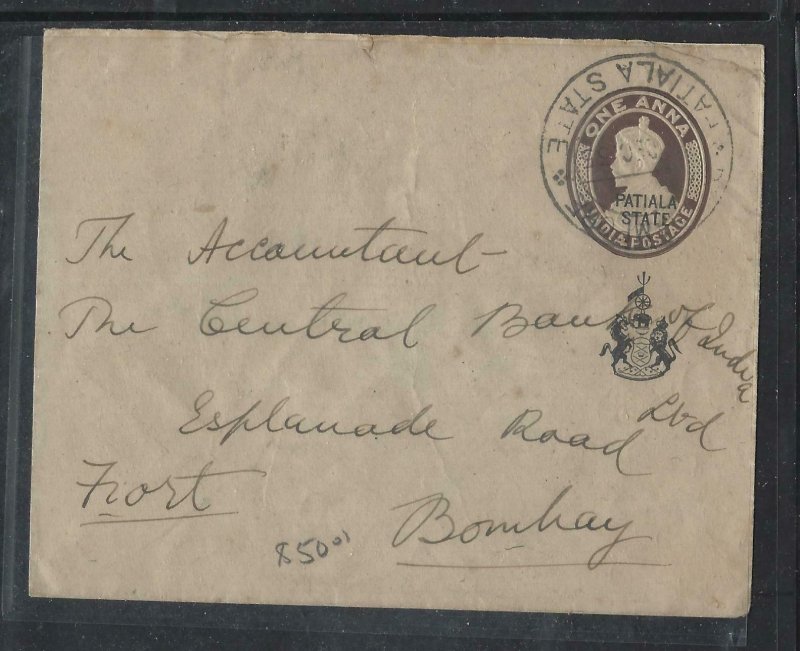 PATIALA STATE
ONE ANNA
PATIALA
STATE
INDIA POSTAGE
The Accountant
The Central Bank of India
Ltd
Esplanade Road
Fort
Bombay
$50.00